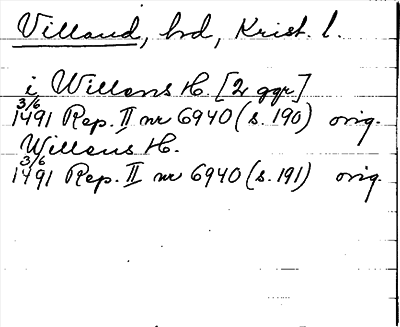 Villand, hd, Krist. l.
i Willans H. [2 ggr.]
3/6
1491 Rep. II nr 6940 (s. 190) orig.
Willans H.
3/6
1491 Rep. II nr 6940 (s. 191) orig.